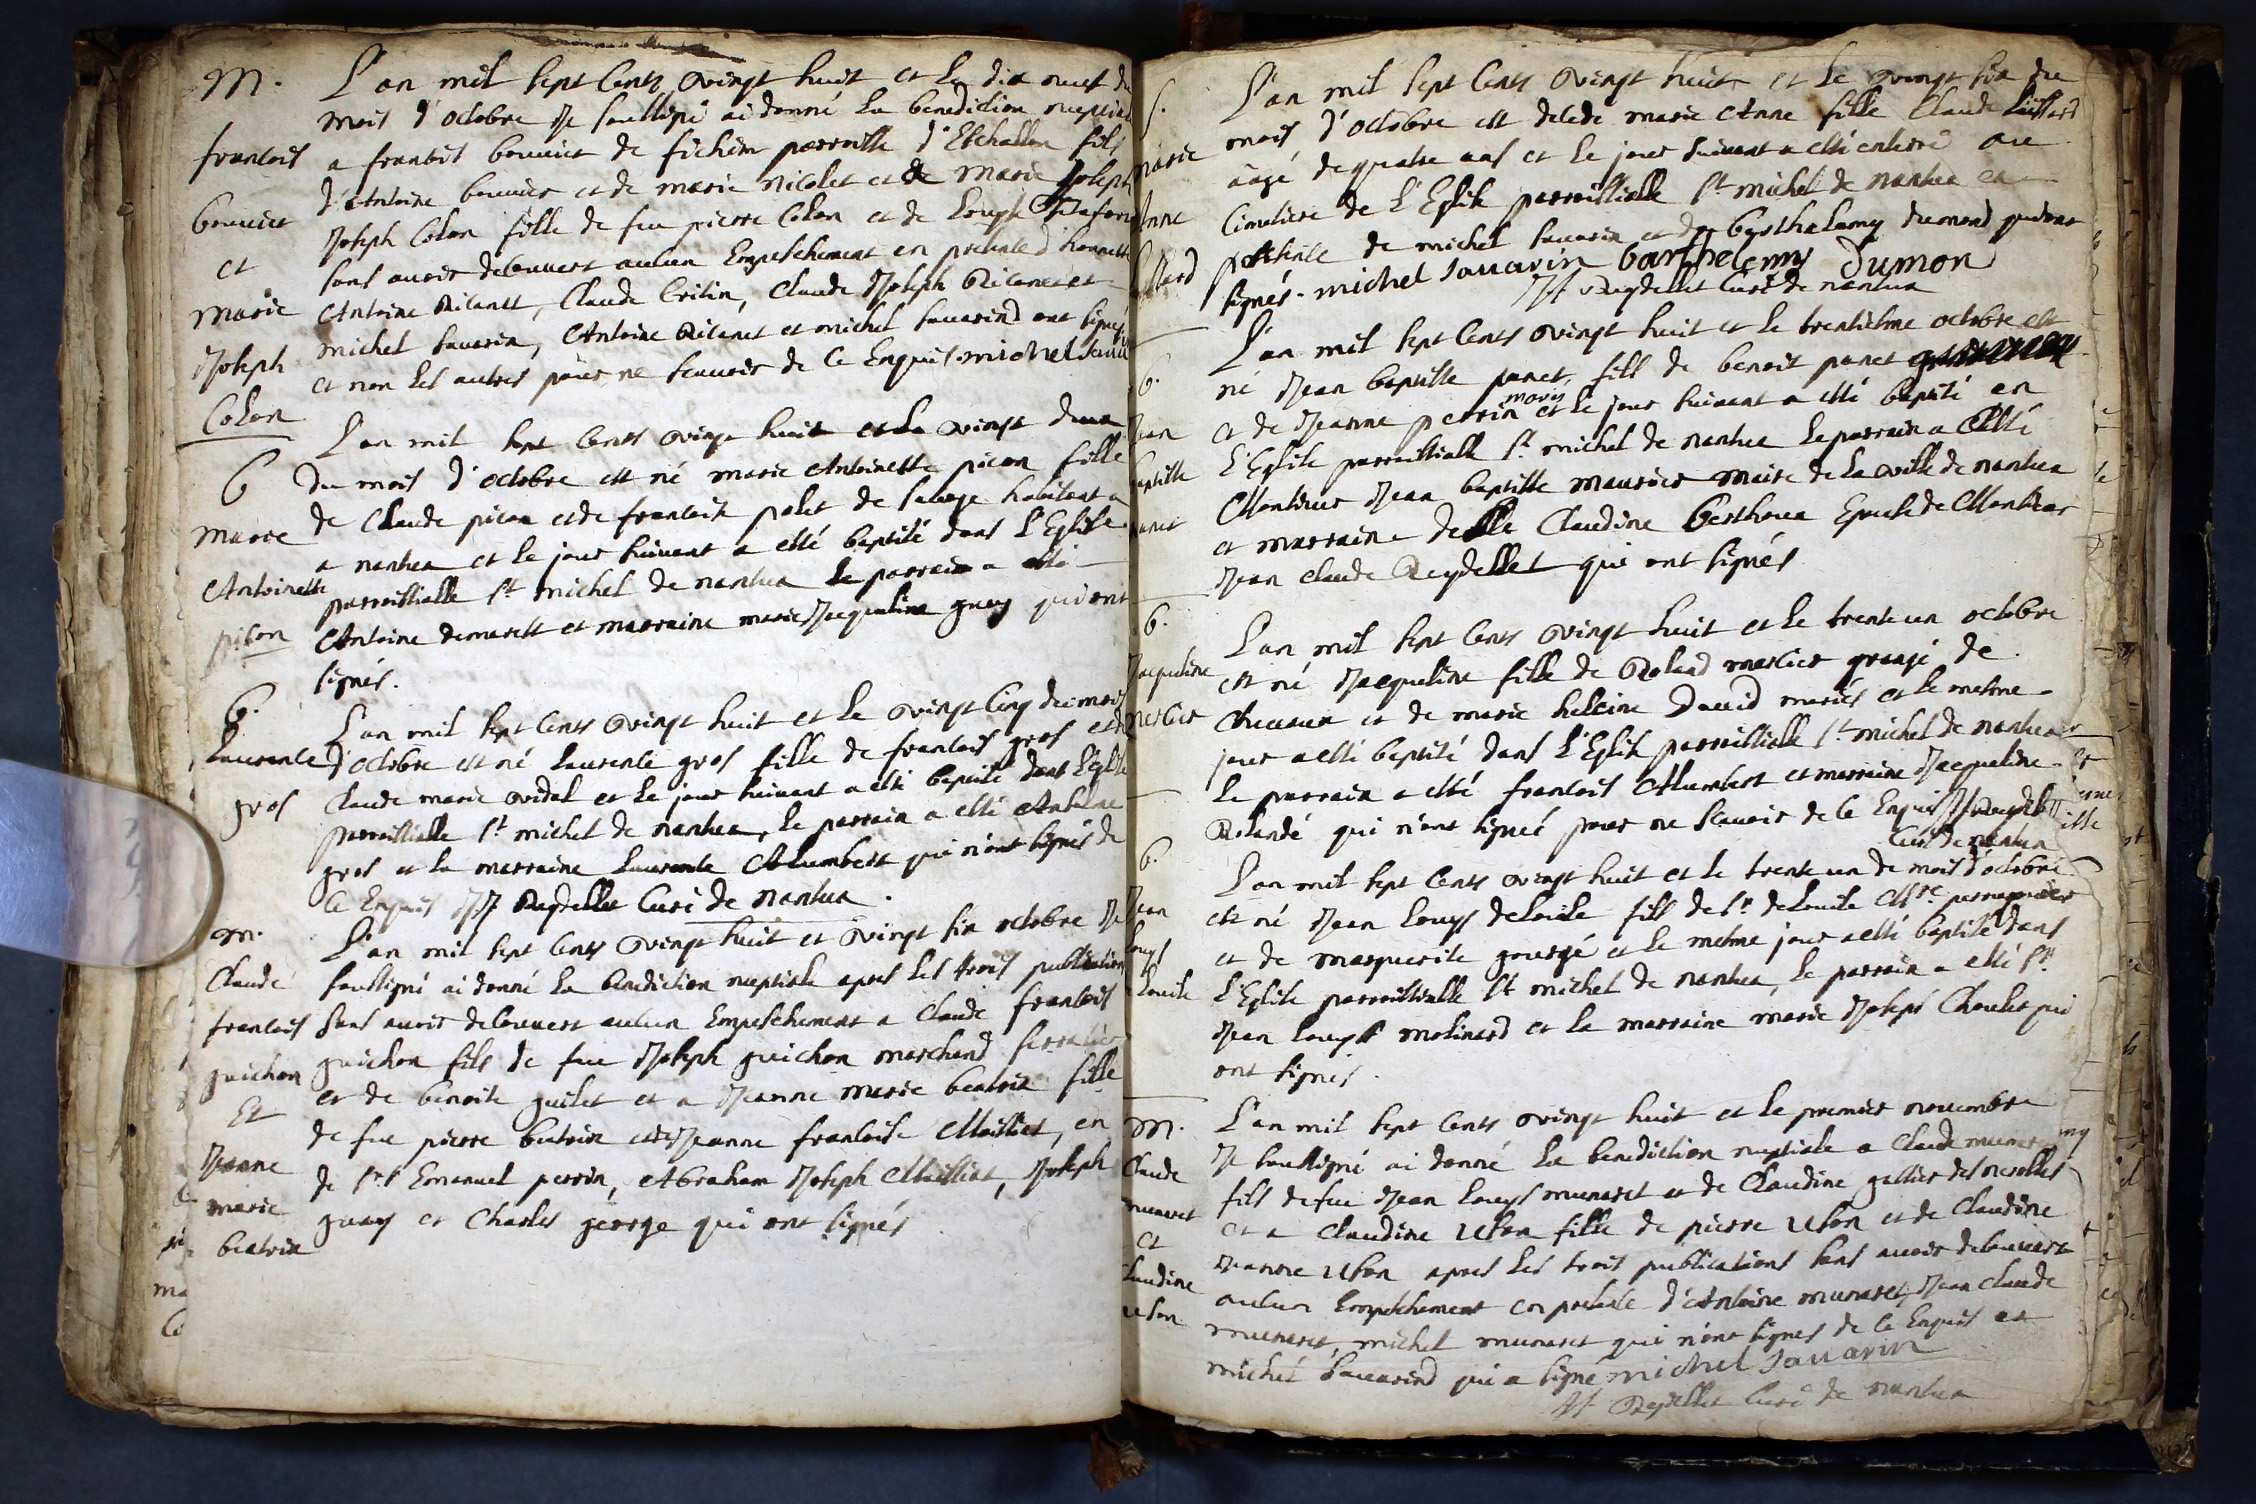 M.
francois
bouvier
et
marie
Joseph
Colon
L'an mil sept Cents vingt huit et le dix neuf du
mois d'octobre Je soussigné ai donné la benediction nuptial
a francois bouvier de parroisse d'Eschallon fils
d'Antoine bouvier et de marie nicolet et de marie Joseph
Joseph Colon fille de feu pierre Colon et de
sans avoir descouvert aulcun Empeschement en presence d'honnette
Antoine Claude Claude Joseph
michel sauarin, Antoine et michel sauarind ont signés
et non les autres pour ne scauoir de ce Enquis. michel
b
marie
Antoinette
picon
L'an mil sept Cents vingt huit et le vingt deux
du mois d'octobre est né marie Antoinette picon fille
de Claude picon et de francoise polet de habitant a
a nantua et le jour suivant a esté baptisé dans l'Eglise
parroissialle St michel de nantua le parrain a esté
Antoine demarest et marraine marie Jacqueline guay qui ont
signés.
b.
Laurence
gros
L'an mil sept Cents vingt huit et le vingt Cinq du mois
d'octobre est né Laurence gros fille de francois gros et de
Claude marie vidal et le jour suivant a esté baptisé dans l'Eglise
parroissialle St michel de nantua, le parrain a esté Anthelme
gros et la marraine Laurence Alumbert qui n'ont signés de
ce Enquis JJ Reydellet Curé de nantua.
m.
Claude
francois
guichon
Et
Jeanne
marie
beatrix
L'an mil sept Cents vingt huit et vingt six octobre Je
soussigné ai donné la benediction nuptiale apres les trois publications
sans avoir descouvert aulcun Empeschement a Claude francois
guichon fils de feu Joseph guichon marchand
et de benoite et a Jeanne marie beatrix fille
de feu pierre beatrix et de Jeanne francoise Maillat, en
de Srs Emanuel perrin, Abraham Joseph Maillat, Joseph
guay et Charles george qui ont signés
S.
marie
Anne
L'an mil sept Cents vingt huit et le vingt six du
mois d'octobre est decedé marie Anne fille Claude
aagé de quatre ans et le jour suivant a esté enterré au
Cimetiere de l'Eglise parroissialle St michel de nantua en
presence de michel sauarin et de barthelemy dumond qui ont
signés. michel sauarin barthelemy dumon
JJ Reydellet Curé de nantua
b.
Jean
baptiste
panet
L'an mil sept Cents vingt huit et le trentiesme octobre est
né Jean baptiste panet, fils de benoit panet
et de Jeanne perrin mariés et le jour suivant a esté baptisé en
l'Eglise parroissialle St michel de nantua le parrain a Esté
Monsieur Jean baptiste maurier maire de la ville de nantua
et marraine delle Claudine Epouse de Monsieur
Jean Claude Reydellet qui ont signés
b.
Jacqueline
mercier
L'an mil sept Cents vingt huit et le trente un octobre
est né Jacqueline fille de Roland mercier grangé de
et de marie heleine David mariés et le mesme
jour a esté baptisé dans l'Eglise parroissialle St michel de nantua
le parrain a esté francois Alumbert et marraine Jacqueline
Rolandé qui n'ont signéé pour ne scavoir de ce Enquis JJ Reydellet
Curé de nantua
b.
Jean
Louys
L'an mil sept Cents vingt huit et le trente un de mois d'octobre
est né Jean Louys fils de Sr
et de marguerite et le mesme jour a esté baptisé dans
l'Eglise parroissialle St michel de nantua, le parrain a esté Sr
Jean Louys molinard et la marraine marie Joseph qui
ont signés.
m.
Claude
munaret
et
Claudine
uson
L'an mil sept Cents vingt huit et le premier nouembre
Je soussigné ai donné la benediction nuptiale a Claude
fils de feu Jean Louys munaret et de Claudine des nerolles
et a Claudine uson fille de pierre uson et de Claudine
Jeanne uson apres les trois publications sans avoir descouvert
aulcun Empeschement en presence d'Antoine munaret, Jean Claude
munaret, michel munaret qui n'ont signes de ce Enquis et
michel sauarind qui a signé michel sauarin
JJ Reydellet Curé de nantua